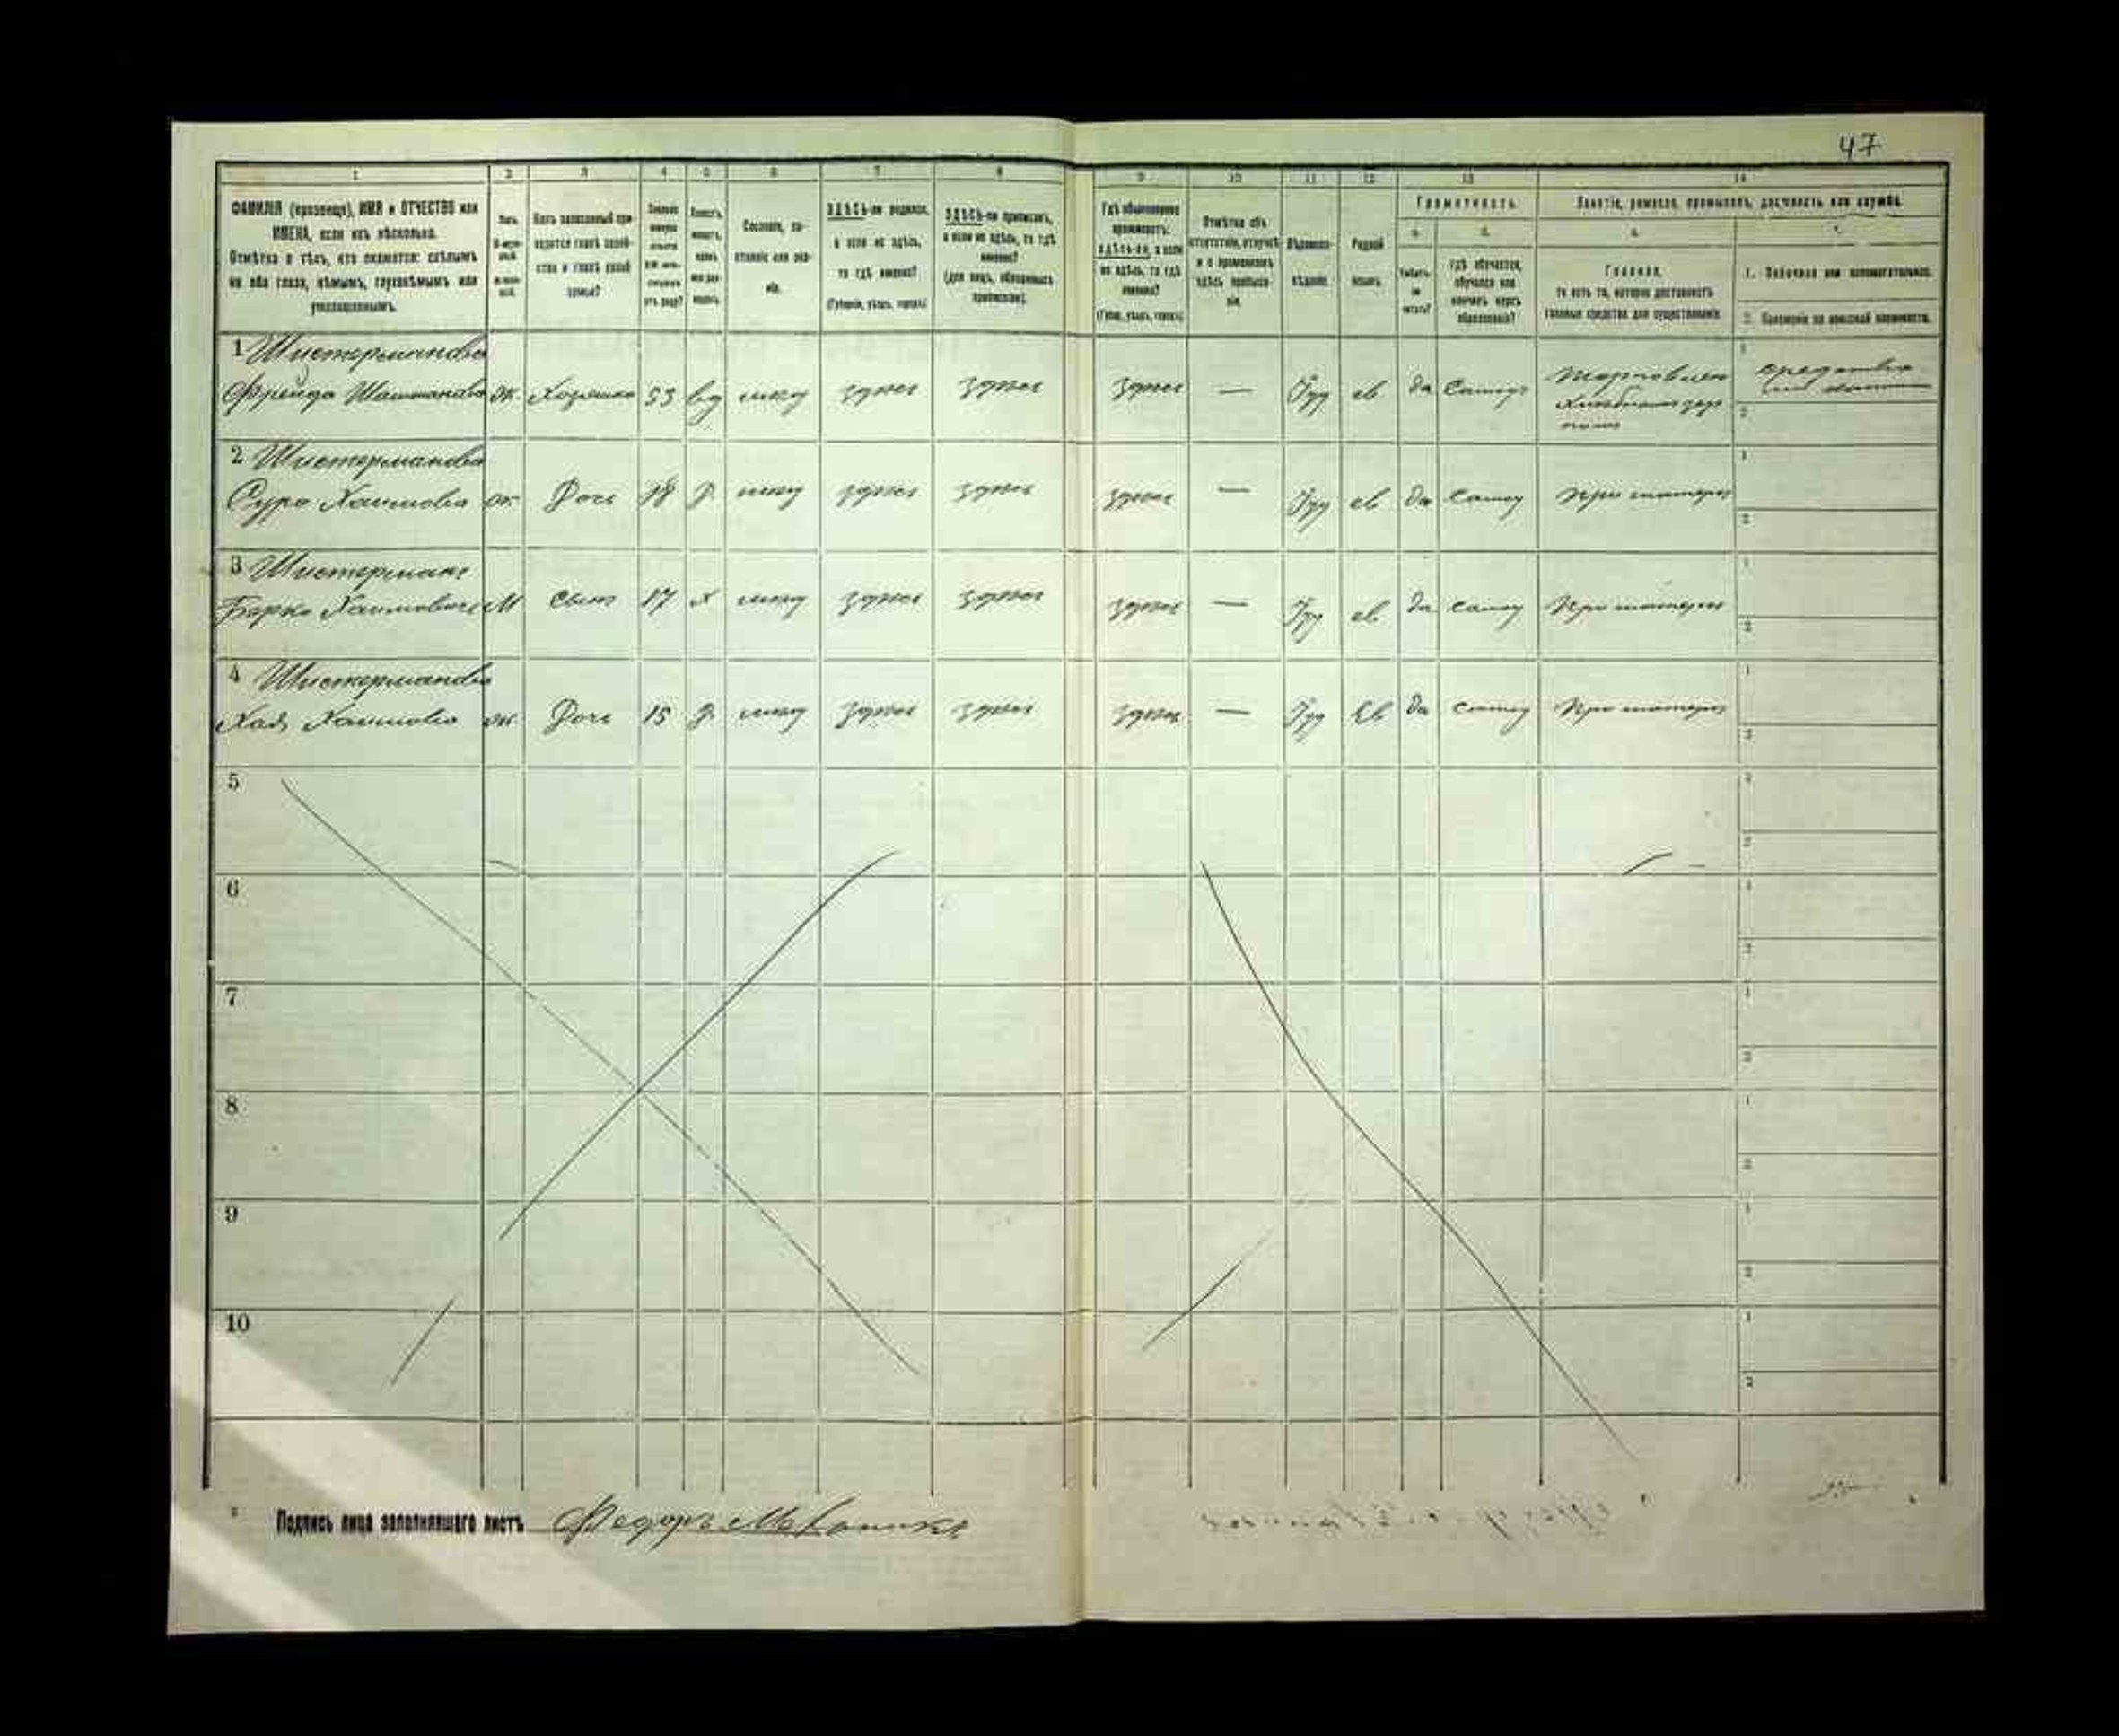 47
1 2 3 4 5 6 7 8 9 10 11 12 13 14
ФАМИЛІЯ (прозвище), ИМЯ и ОТЧЕСТВО или
ИМЕНА, если ихъ нѣсколько.
Отмѣтка о тѣхъ, кто окажется: слѣпымъ
на оба глаза, нѣмымъ, глухонѣмымъ или
умалишеннымъ.
Полъ.
Какъ записанный при-
ходится главѣ хозяй-
ства и главѣ своей
семьи?
Сословіе, со-
стояніе или зва-
ніе.
ЗДѢСЬ-ли родился,
а если не здѣсь,
то гдѣ именно?
(Губернія, уѣздъ, городъ)
ЗДѢСЬ-ли приписанъ,
а если не здѣсь, то гдѣ
именно?
(для лицъ, обязанныхъ
припискою).
Гдѣ обыкновенно
проживаетъ:
здѣсь-ли, а если
не здѣсь, то гдѣ
именно?
(Губер., уѣздъ, городъ)
Отмѣтка объ
отсутствіи, отлучкѣ
и о временномъ
здѣсь пребыва-
ніи.
Вѣроиспо-
вѣданіе.
Родной
языкъ.
Грамотность.
а. б.
Умѣетъ-
ли
читать?
гдѣ обучается,
обучался или
кончилъ курсъ
образованія?
Занятіе, ремесло, промыселъ, должность или служба.
Главное,
то есть то, которое доставляетъ
главныя средства для существованія.
1. Побочное или вспомогательное.
2. Положеніе по воинской повинности.
1 Шистерманова
Фрейда ж. Хозяйка 53 вд мещ здѣсь здѣсь здѣсь — Іуд ев да Самоу Торговля 1
2
2 Шистерманова
Сура Хаимова ж Дочь 18 д. мещ здѣсь здѣсь здѣсь — Іуд ев да Самоу При матери 1
2
3 Шистерманъ
Берко Хаимовичъ М Сынъ 17 х мещ здѣсь здѣсь здѣсь — Іуд ев да самоу При матери 1
2
4 Шистерманова
Хая Хаимова ж Дочь 15 д. мещ здѣсь здѣсь здѣсь — Іуд Ев да самоу При матери 1
2
5 1
2
6 1
2
7 1
2
8 1
2
9 1
2
10 1
2
Подпись лица заполнявшаго листъ Федоръ